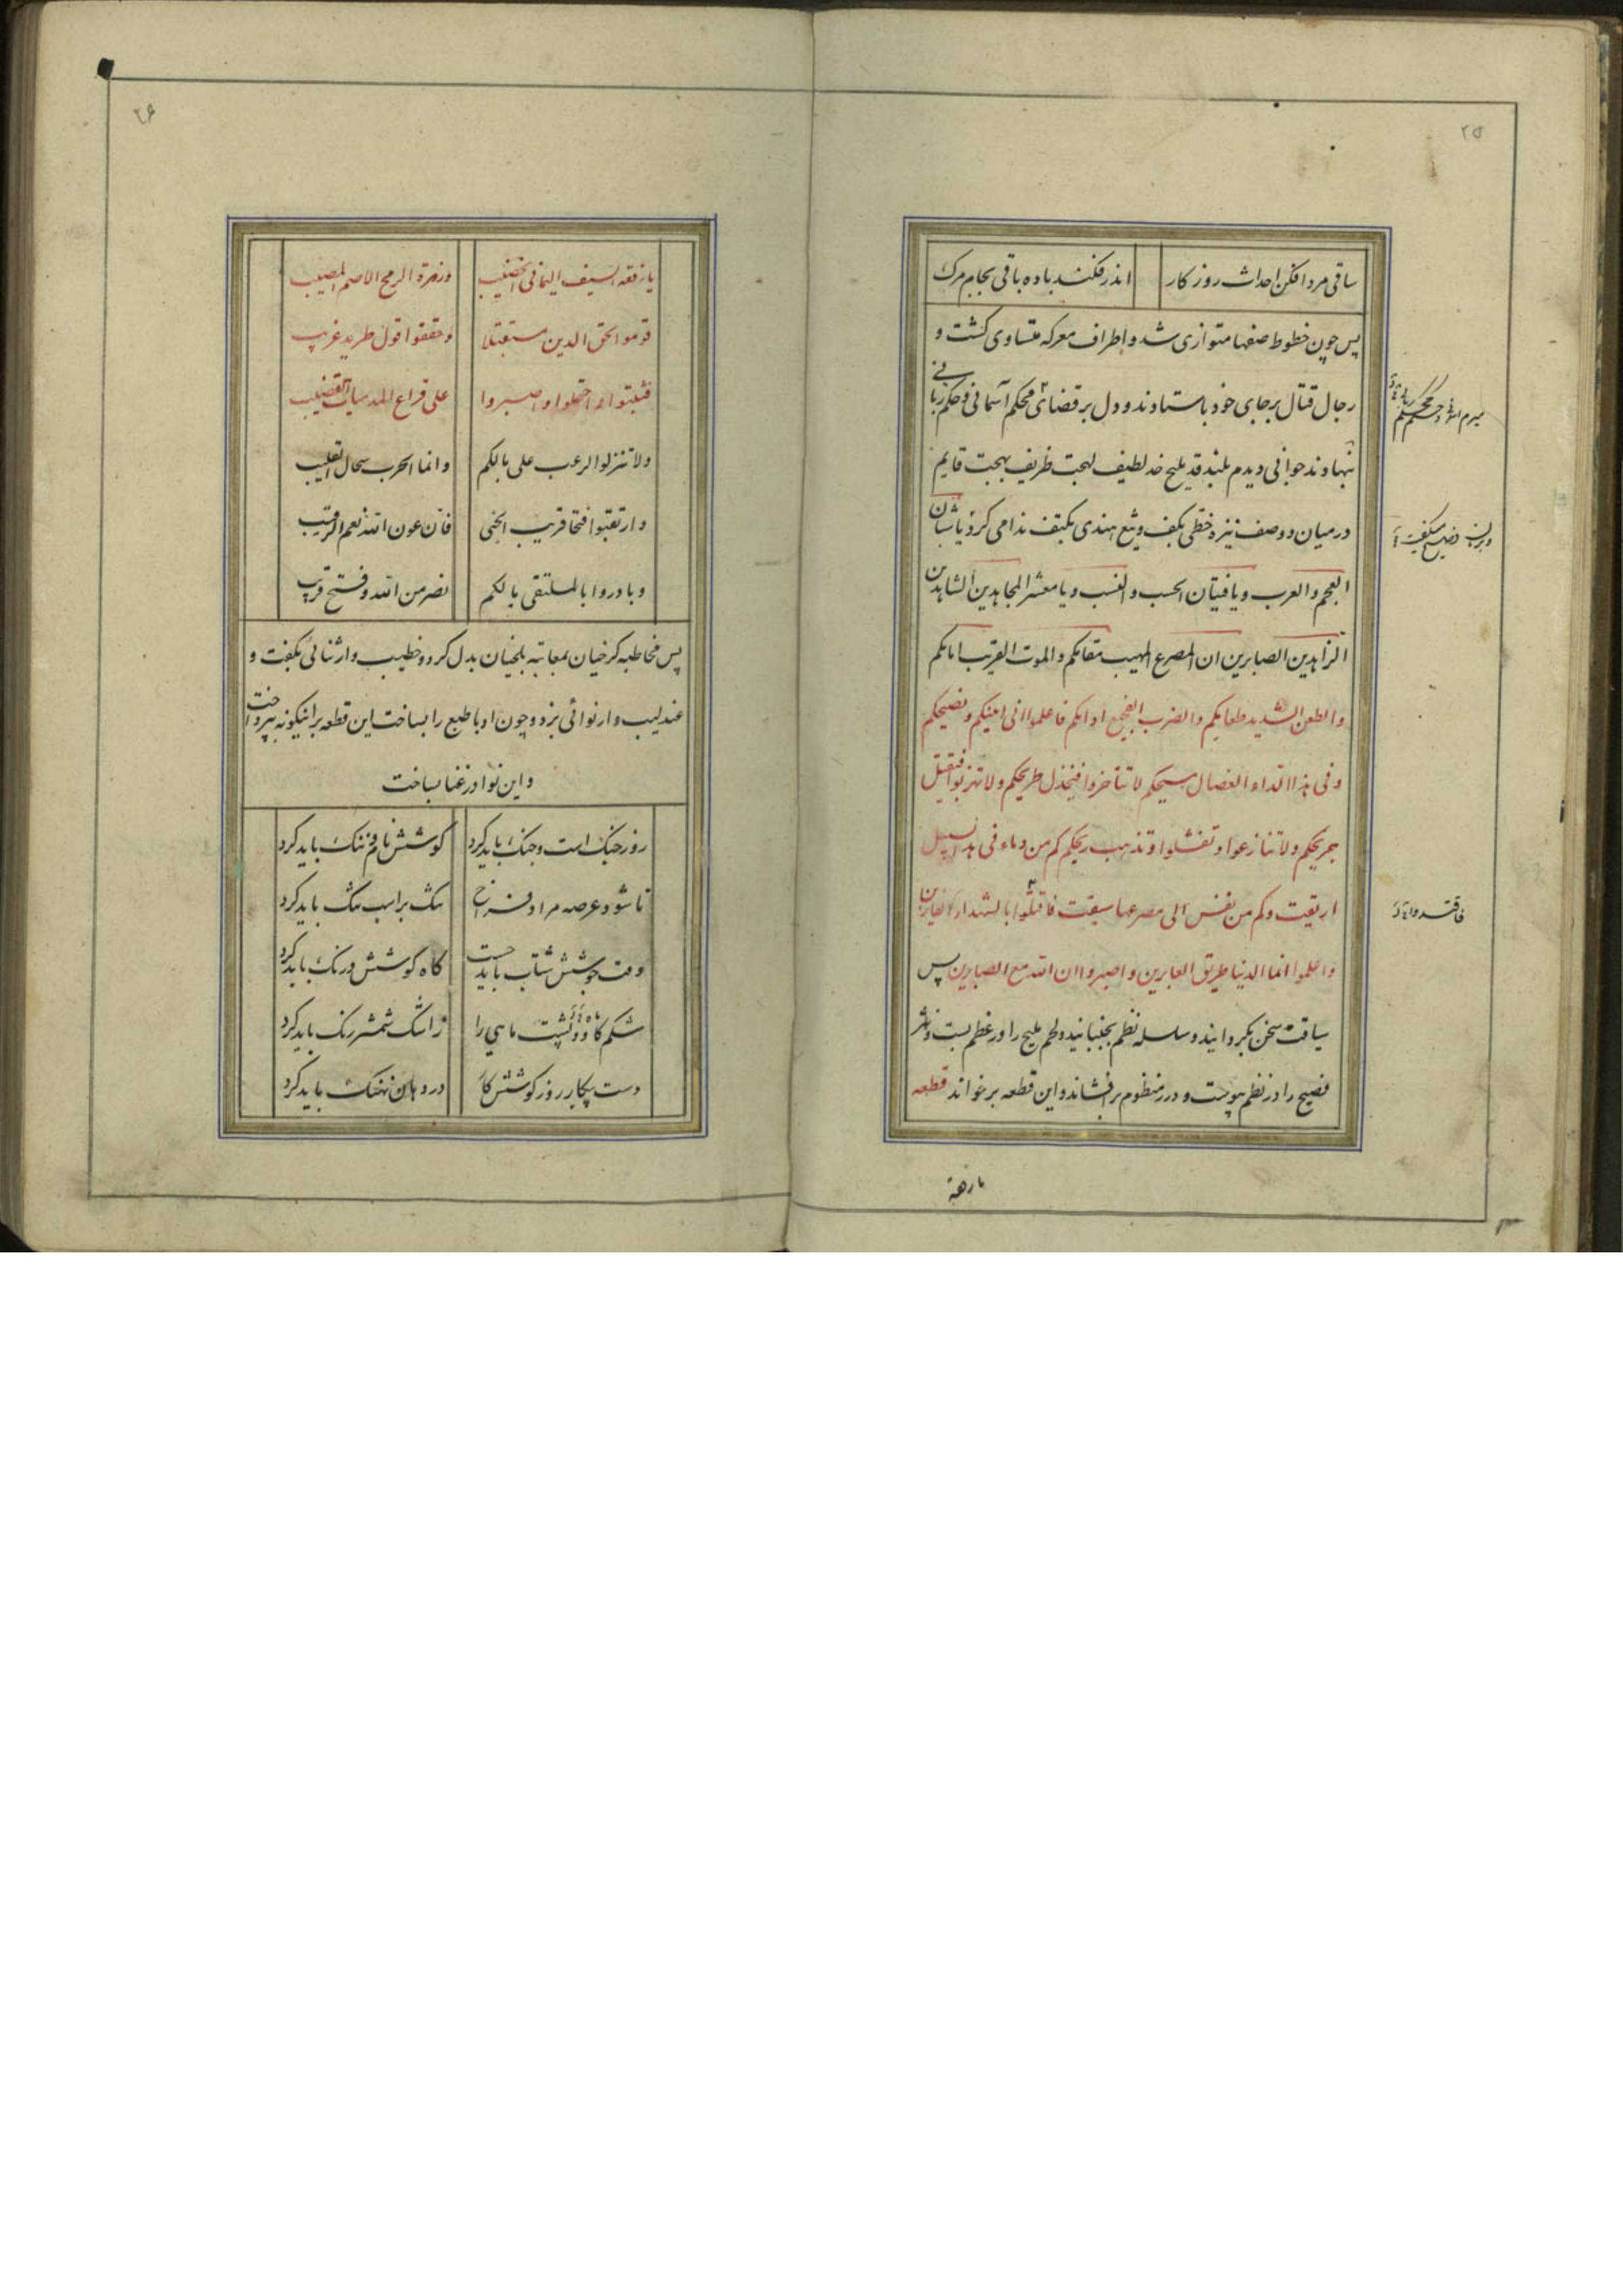 ۲۵
ساقی مرد افکن احداث روزکار اندر فکند باده باقی بجام مرک
پس چون خطوط صفها متوازی شد و اطراف معرکه متساوی کشت و
رجال قتال برجای خود باستادند و دل بر قضای محکم آسمانی و حکم ربانی
بنهادند جوانی دیدم بلند قد ملیح خد لطیف لهجت ظریف بهجت قایم
درمیان دو صف نیزه خطی بکف و تیغ هندی بکتف ندا می کرد یا شبان
العجم والعرب و یا فتیان الحسب والنسب و یا معشر المجاهدین الشاهدین
الزاهدین الصابرین ان المصرع المهیب مقامکم والموت القریب امامکم
والطعن الشدید طعامکم والضرب الفجیع ادامکم فاعلموا انی امینکم و نصیحکم
وفی هذا الداء العضال مسیحکم لا تتأخروا فیخذل طریحکم ولا تهزبوا فیقتل
جریحکم ولا تنازعوا وتفشلوا وتذهب ریحکم کم من دماء فی هذا السبیل
اریقت وکم من نفس الی مصرعها سیقت فاقتلوا بالشهداء الغابرین
واعلموا انما الدنیا طریق العابرین واصبروا ان الله مع الصابرین پس
سیاقت سخن بکردانید و سلسله نظم بجنبانید و لحم ملیح را در عظم بست و نثر
فصیح را در نظم پیوست و درر منظوم برافشاند و این قطعه برخواند قطعه
فاقتدوا
یا رفقة
۲۶
یا رفقة السیف الیمانی الخضیب وزمرة الرمح الاصم المصیب
قوموا لحق الدین مستقبلا وحققوا قول طرید غریب
فثبتوا واحتملوا واصبروا علی قراع
ولا تنزلوا الرعب علی بالکم وانما الحرب سجال القلیب
وارتقبوا فتحا قریب الجنی فان عون الله نعم الرقیب
وبادروا بالملتقی بالکم نصر من الله وفتح قریب
پس مخاطبه کرخیان بمعاتبه بلخیان بدل کرد و خطیب وار ثنائی بکفت و
عندلیب وار نوائی بزد و چون او با طبع را بساخت این قطعه براینکونه بپرداخت
و این نوا در غنا بساخت
روز جنک است و جنک باید کرد کوشش نام و ننک باید کرد
تا شود عرصه مراد فراخ تنک بر اسب تنک باید کرد
وقت جوشش شتاب باید جست کاه کوشش درنک باید کرد
شکم کاو و پشت ماهی را ز اشک شمشیر رنک باید کرد
دست پیکار روز کوشش کار در دهان نهنک باید کرد